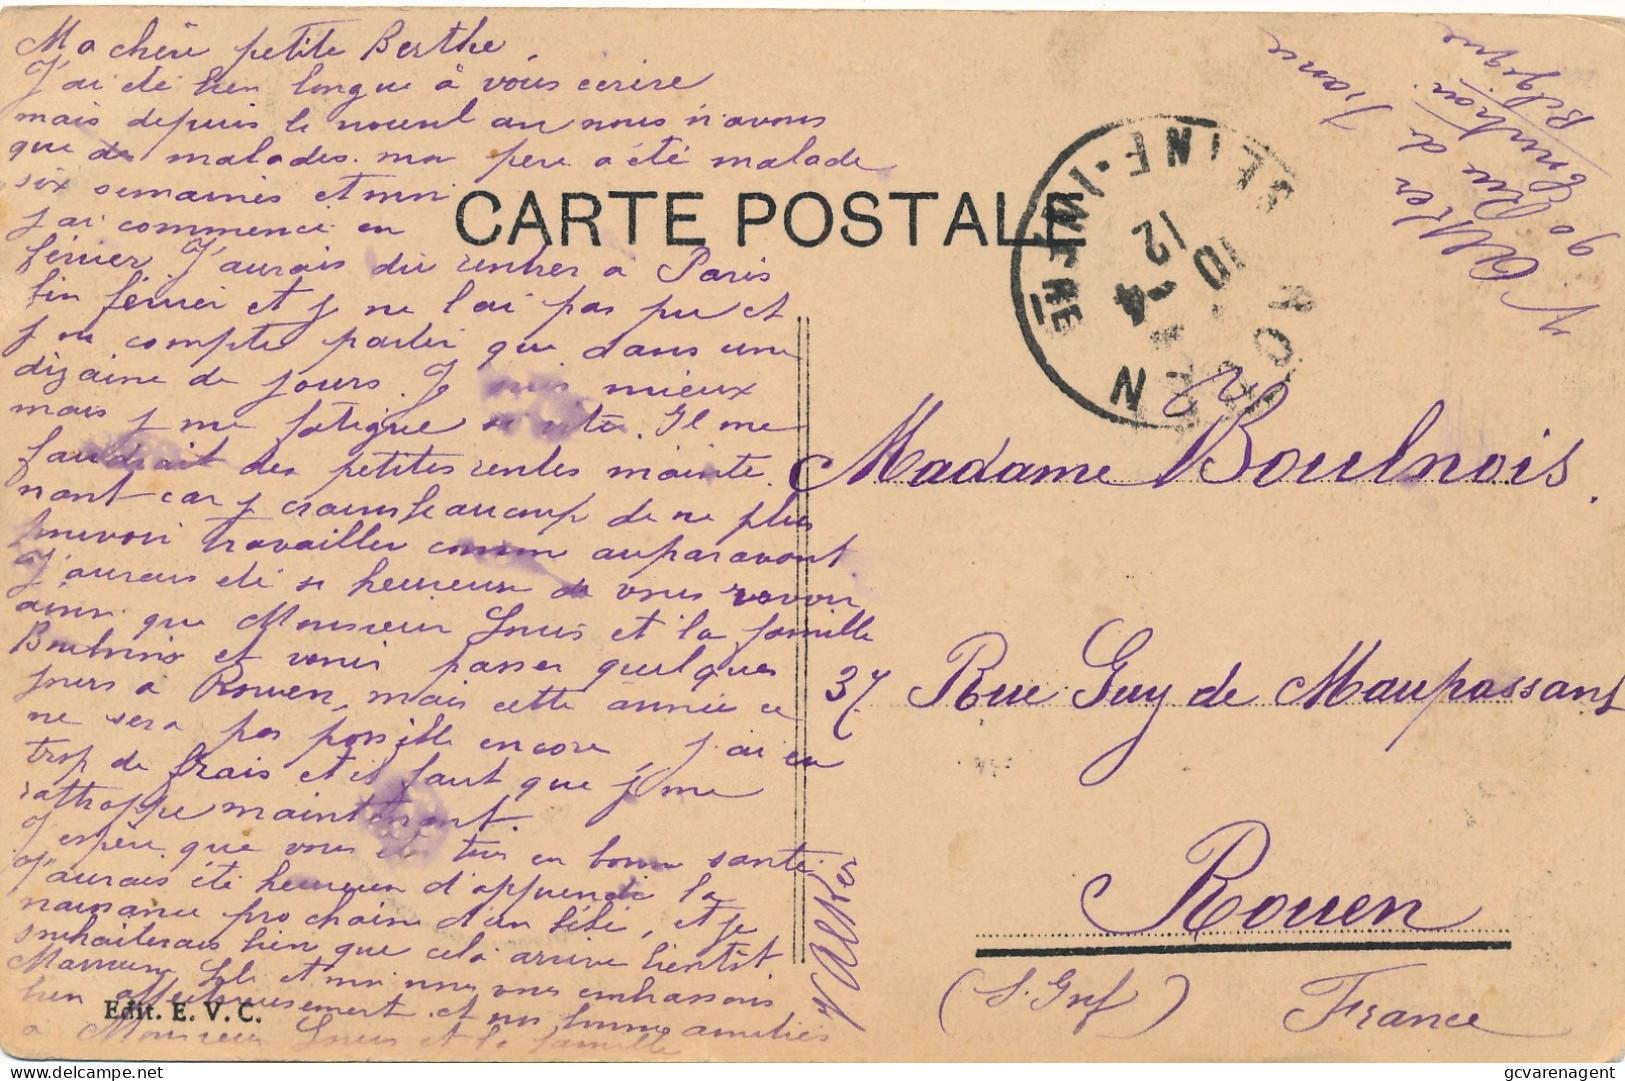 Ma chère petite Berthe,
J'ai été bien longue à vous écrire
mais depuis le nouvel an nous n'avons
que des malades. mon père a été malade
six semaines et moi
j'ai commencé en
février J'aurais dû rentrer à Paris
fin février et je ne l'ai pas pu et
je ne compte partir que dans une
dizaine de jours. Je suis mieux
mais je me fatigue si vite. Il me
faudrait des petites rentes mainte
nant car je crains beaucoup de ne plus
pouvoir travailler comme auparavant
J'aurais été si heureuse de vous revoir
ainsi que Monsieur Louis et la famille
Boulnois et venir passer quelques
jours à Rouen, mais cette année ce
ne sera pas possible encore, j'ai eu
trop de frais et il faut que je me
rattrappe maintenant.
J'espère que vous êtes tous en bonne santé
J'aurais été heureuse d'apprendre la
naissance prochaine d'un bébé, et je
souhaiterais bien que cela arrive bientôt
Maman et moi nous vous embrassons
bien affectueusement et nos bonnes amitiés
à Monsieur Louis et la famille
CARTE POSTALE
ROUEN
SEINE-INFRE
10-4
12
90 Rue de France
Belgique
Madame Boulnois.
37 Rue Guy de Maupassant
Rouen
(S. Inf) France
Edit. E. V. C.
gcvarenagent
https://www.delcampe.net